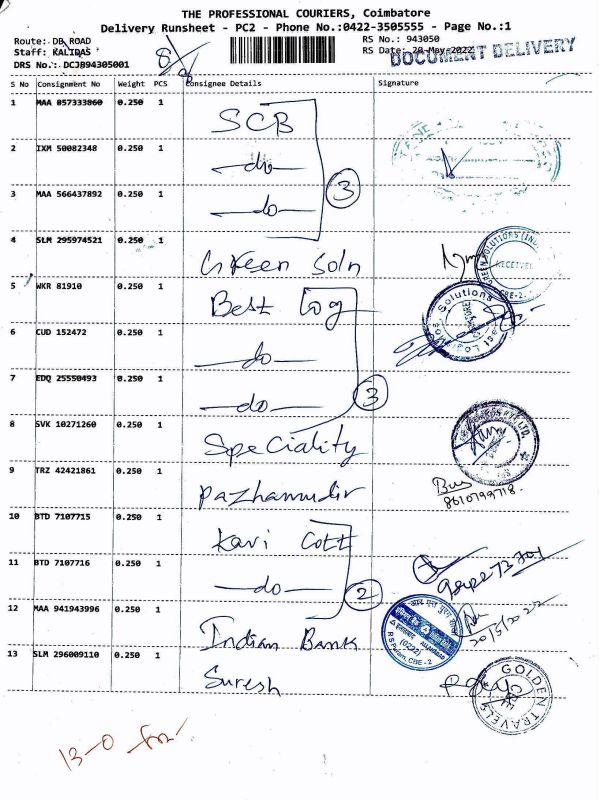 THE PROFESSIONAL COURIERS, Coimbatore
Delivery Runsheet - PC2 - Phone No.:0422-3505555 - Page No.:1
Route: DB ROAD
RS No.: 943050
Staff: KALIDAS
RS Date: 20-May-2022
DOCUMENT DELIVERY
DRS No.: DCJB94305001
S No Consignment No Weight PCS Consignee Details Signature
1 MAA 057333860 0.250 1 SCB
2 IXM 50082348 0.250 1 —do—
3 MAA 566437892 0.250 1 —do—
3
4 SLM 295974521 0.250 1 Green Soln
5 WKR 81910 0.250 1 Best Log
6 CUD 152472 0.250 1 —do—
7 EDQ 25550493 0.250 1 —do—
3
8 SVK 10271260 0.250 1 Speciality
9 TRZ 42421861 0.250 1 Pazhamudir
8610799718
10 BTD 7107715 0.250 1 Kavi Cott
11 BTD 7107716 0.250 1 —do—
2
12 MAA 941943996 0.250 1 Indian Bank
20/5/2022
13 SLM 296009110 0.250 1 Suresh
GOLDEN TRAVELS
13-0